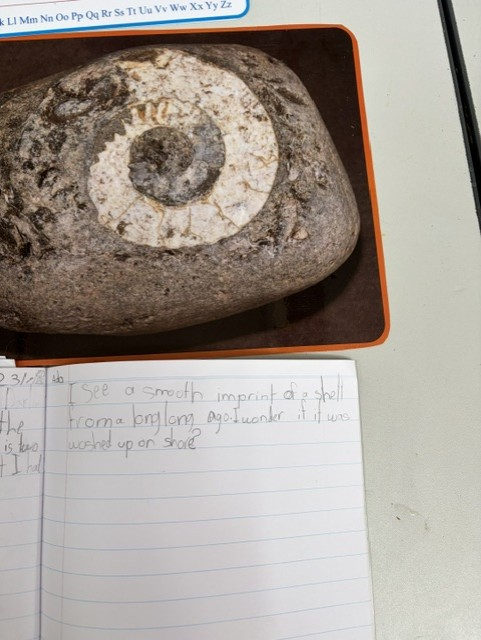 k Ll Mm Nn Oo Pp Qq Rr Ss Tt Uu Vv Ww Xx Yy Zz
I see a smooth imprint of a shell
from a long long ago. I wonder if it was
washed up on shore?
the
is
t I ha